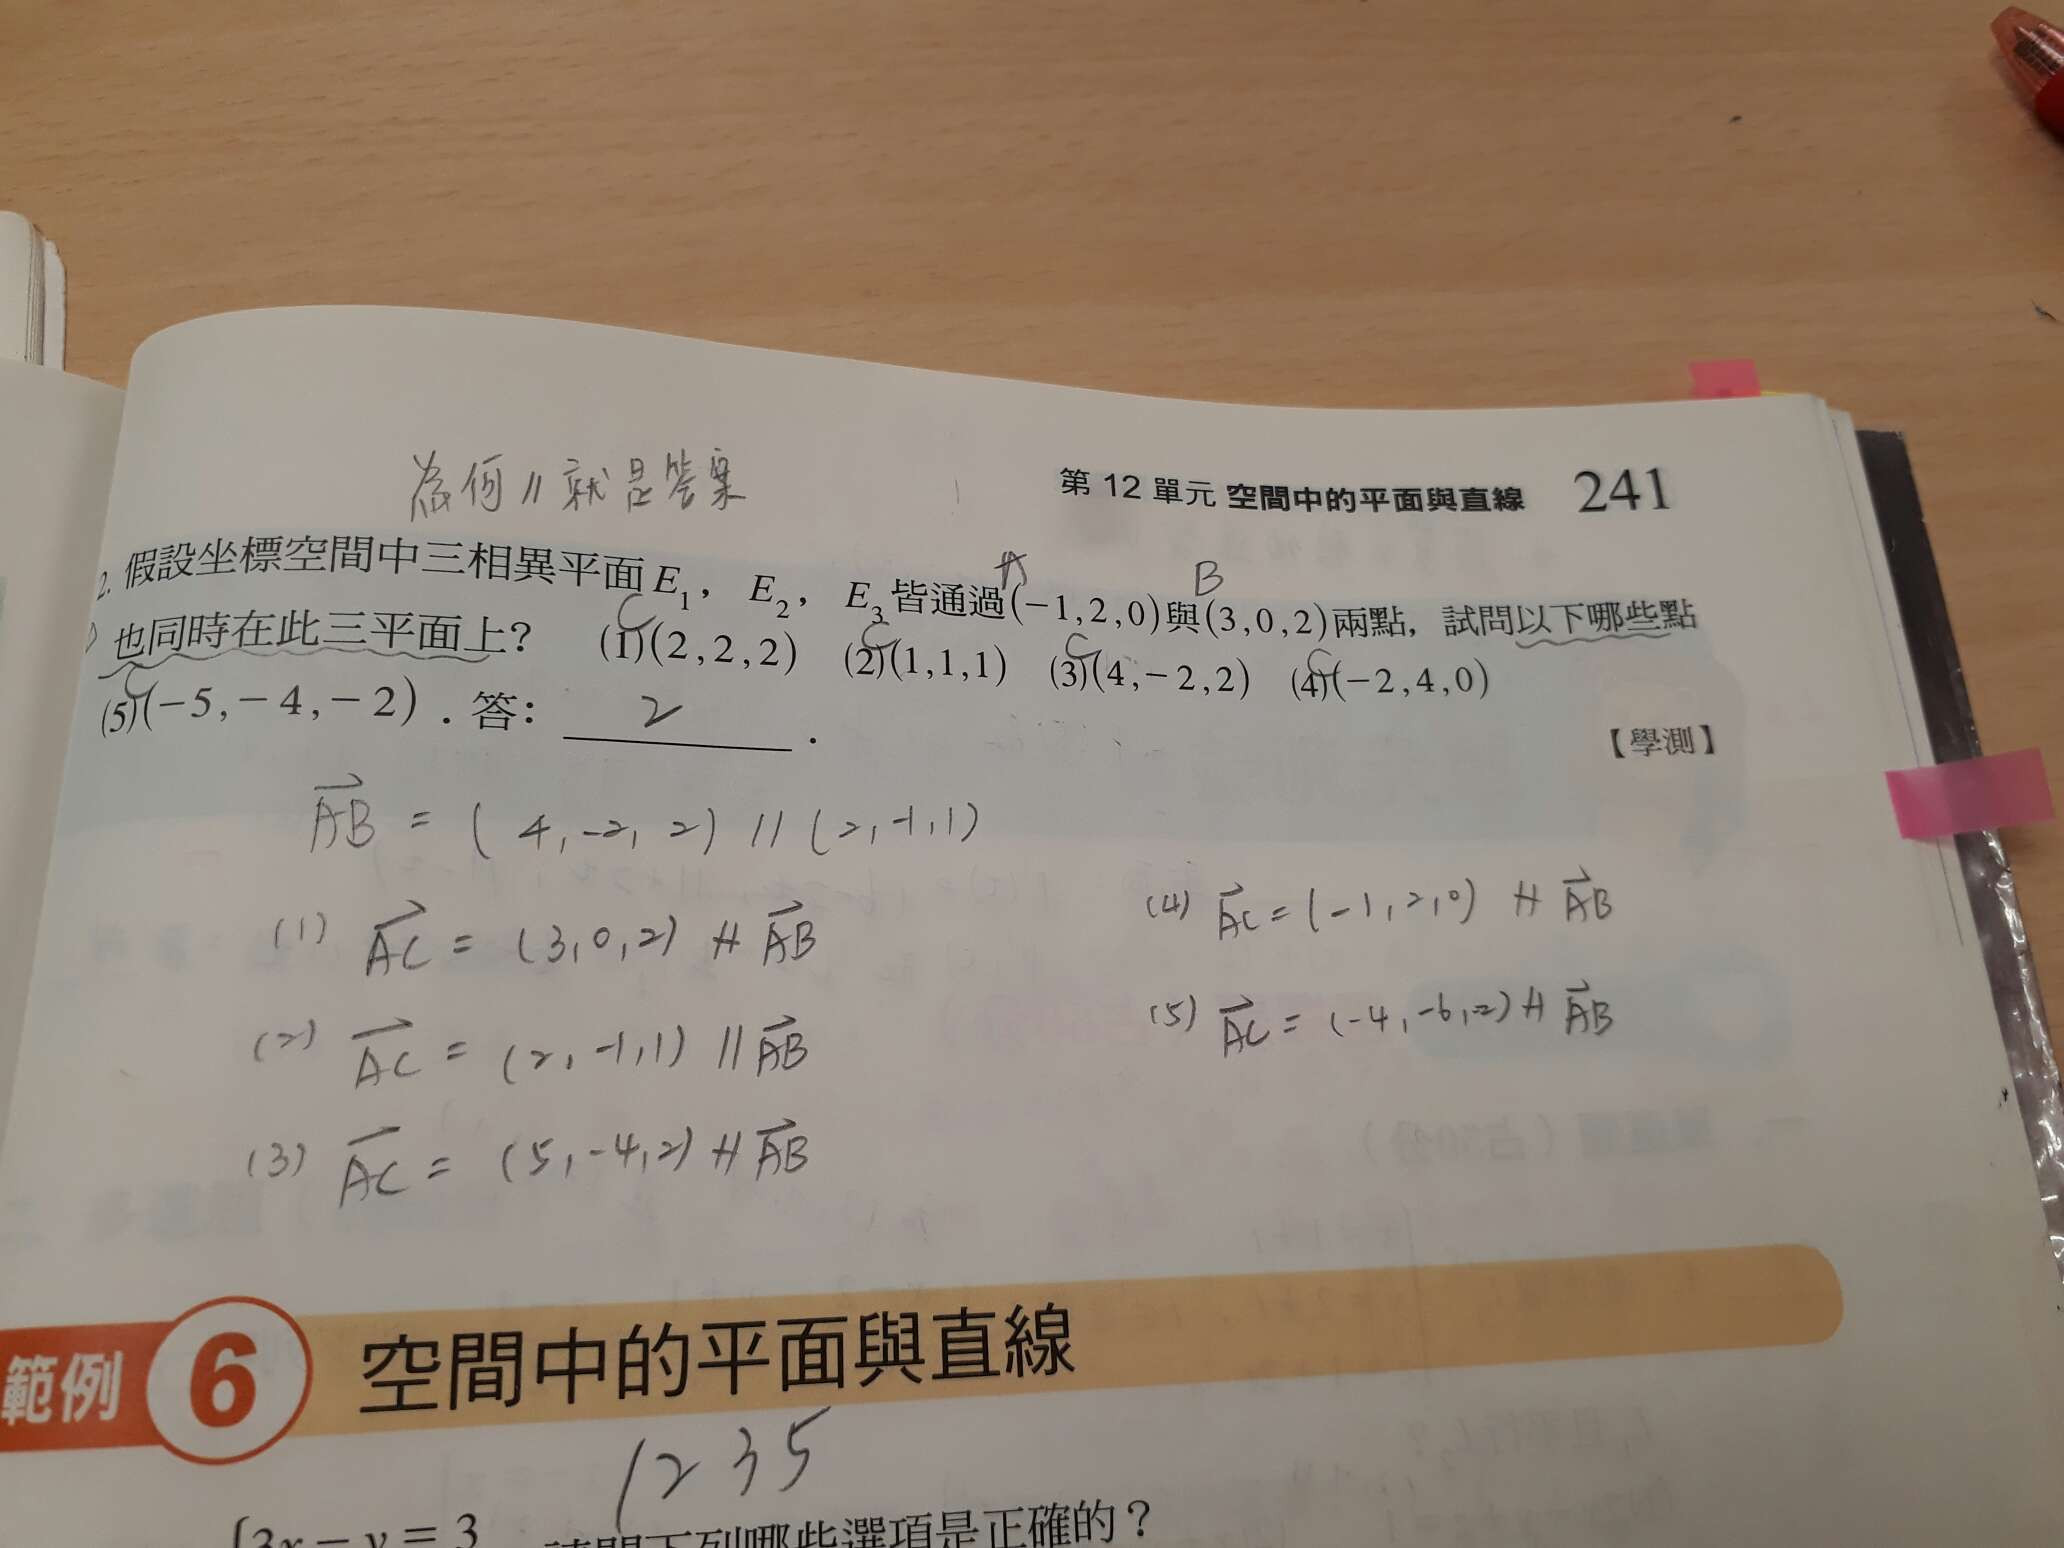 為何//就是答案
第 12 單元 空間中的平面與直線 241
A B
2. 假設坐標空間中三相異平面E₁，E₂，E₃皆通過(-1,2,0)與(3,0,2)兩點，試問以下哪些點
也同時在此三平面上？ (1)(2,2,2) (2)(1,1,1) (3)(4,-2,2) (4)(-2,4,0)
C C C C
(5)(-5,-4,-2)．答：2．
C
【學測】
AB = (4,-2,2) // (2,-1,1)
(1) AC = (3,0,2) ∦ AB
(2) AC = (2,-1,1) // AB
(3) AC = (5,-4,2) ∦ AB
(4) AC = (-1,2,0) ∦ AB
(5) AC = (-4,-6,-2) ∦ AB
範例 6 空間中的平面與直線
1 2 3 5
{3x-y=3 下列哪些選項是正確的？